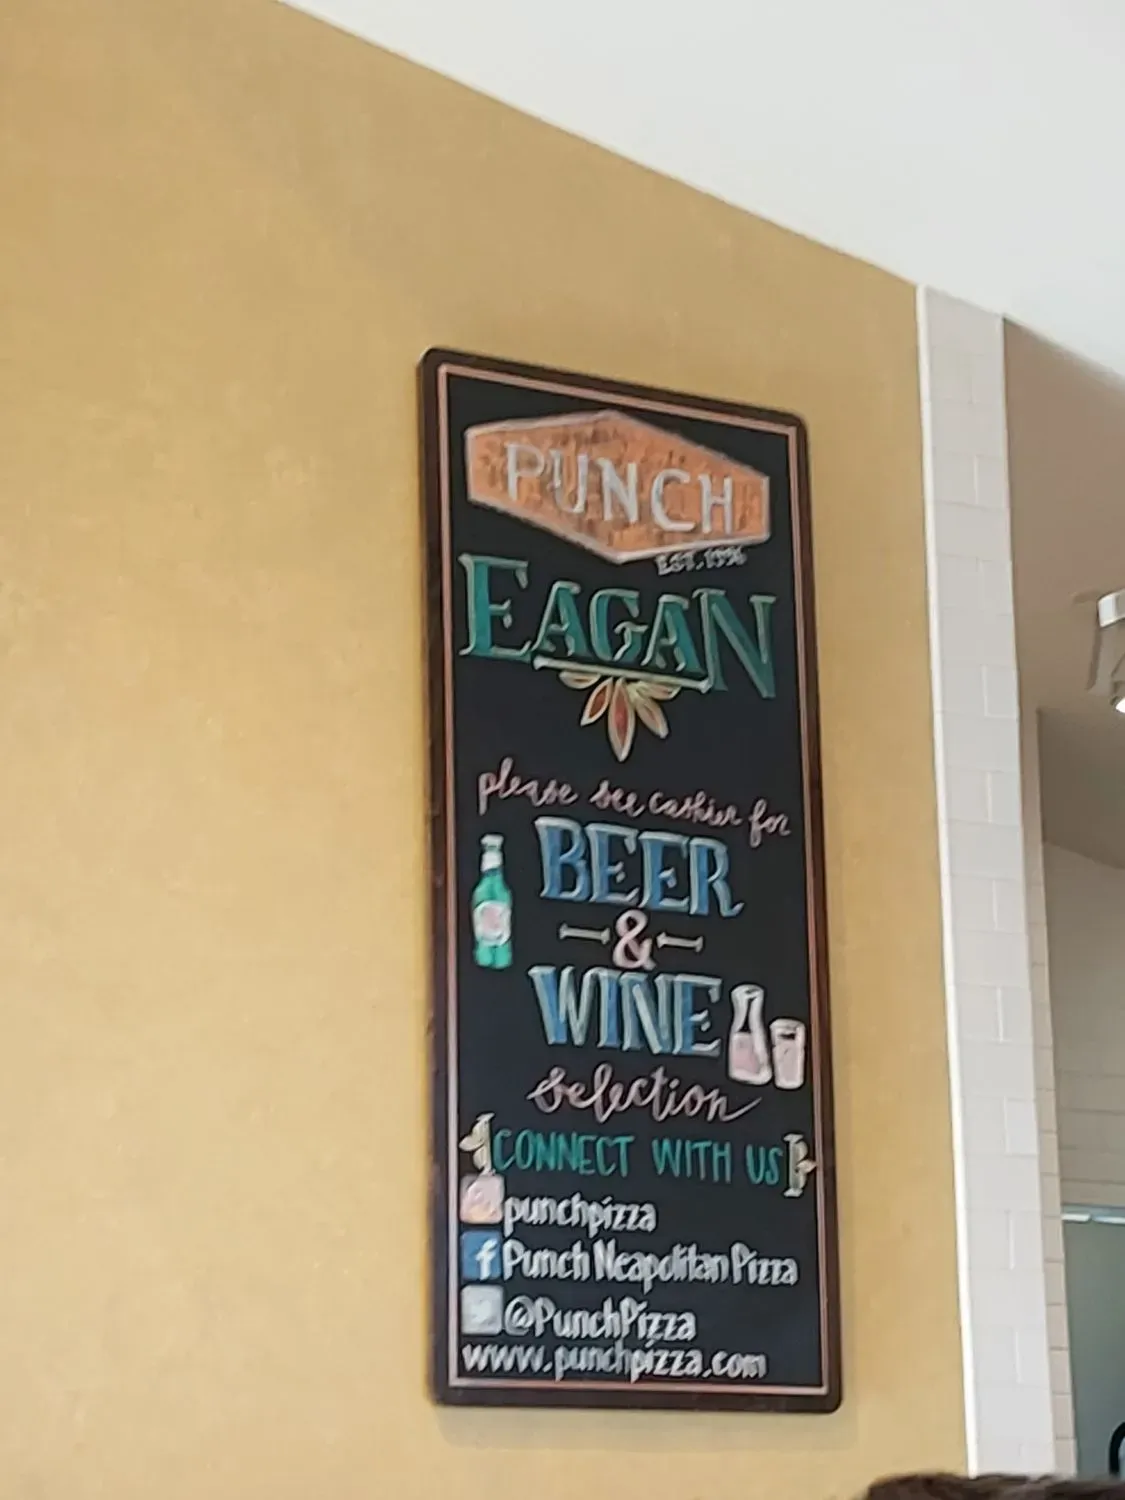 PUNCH
EST. 1996
EAGAN
please see cashier for
BEER
&
WINE
selection
CONNECT WITH US
punchpizza
f Punch Neapolitan Pizza
@PunchPizza
www.punchpizza.com